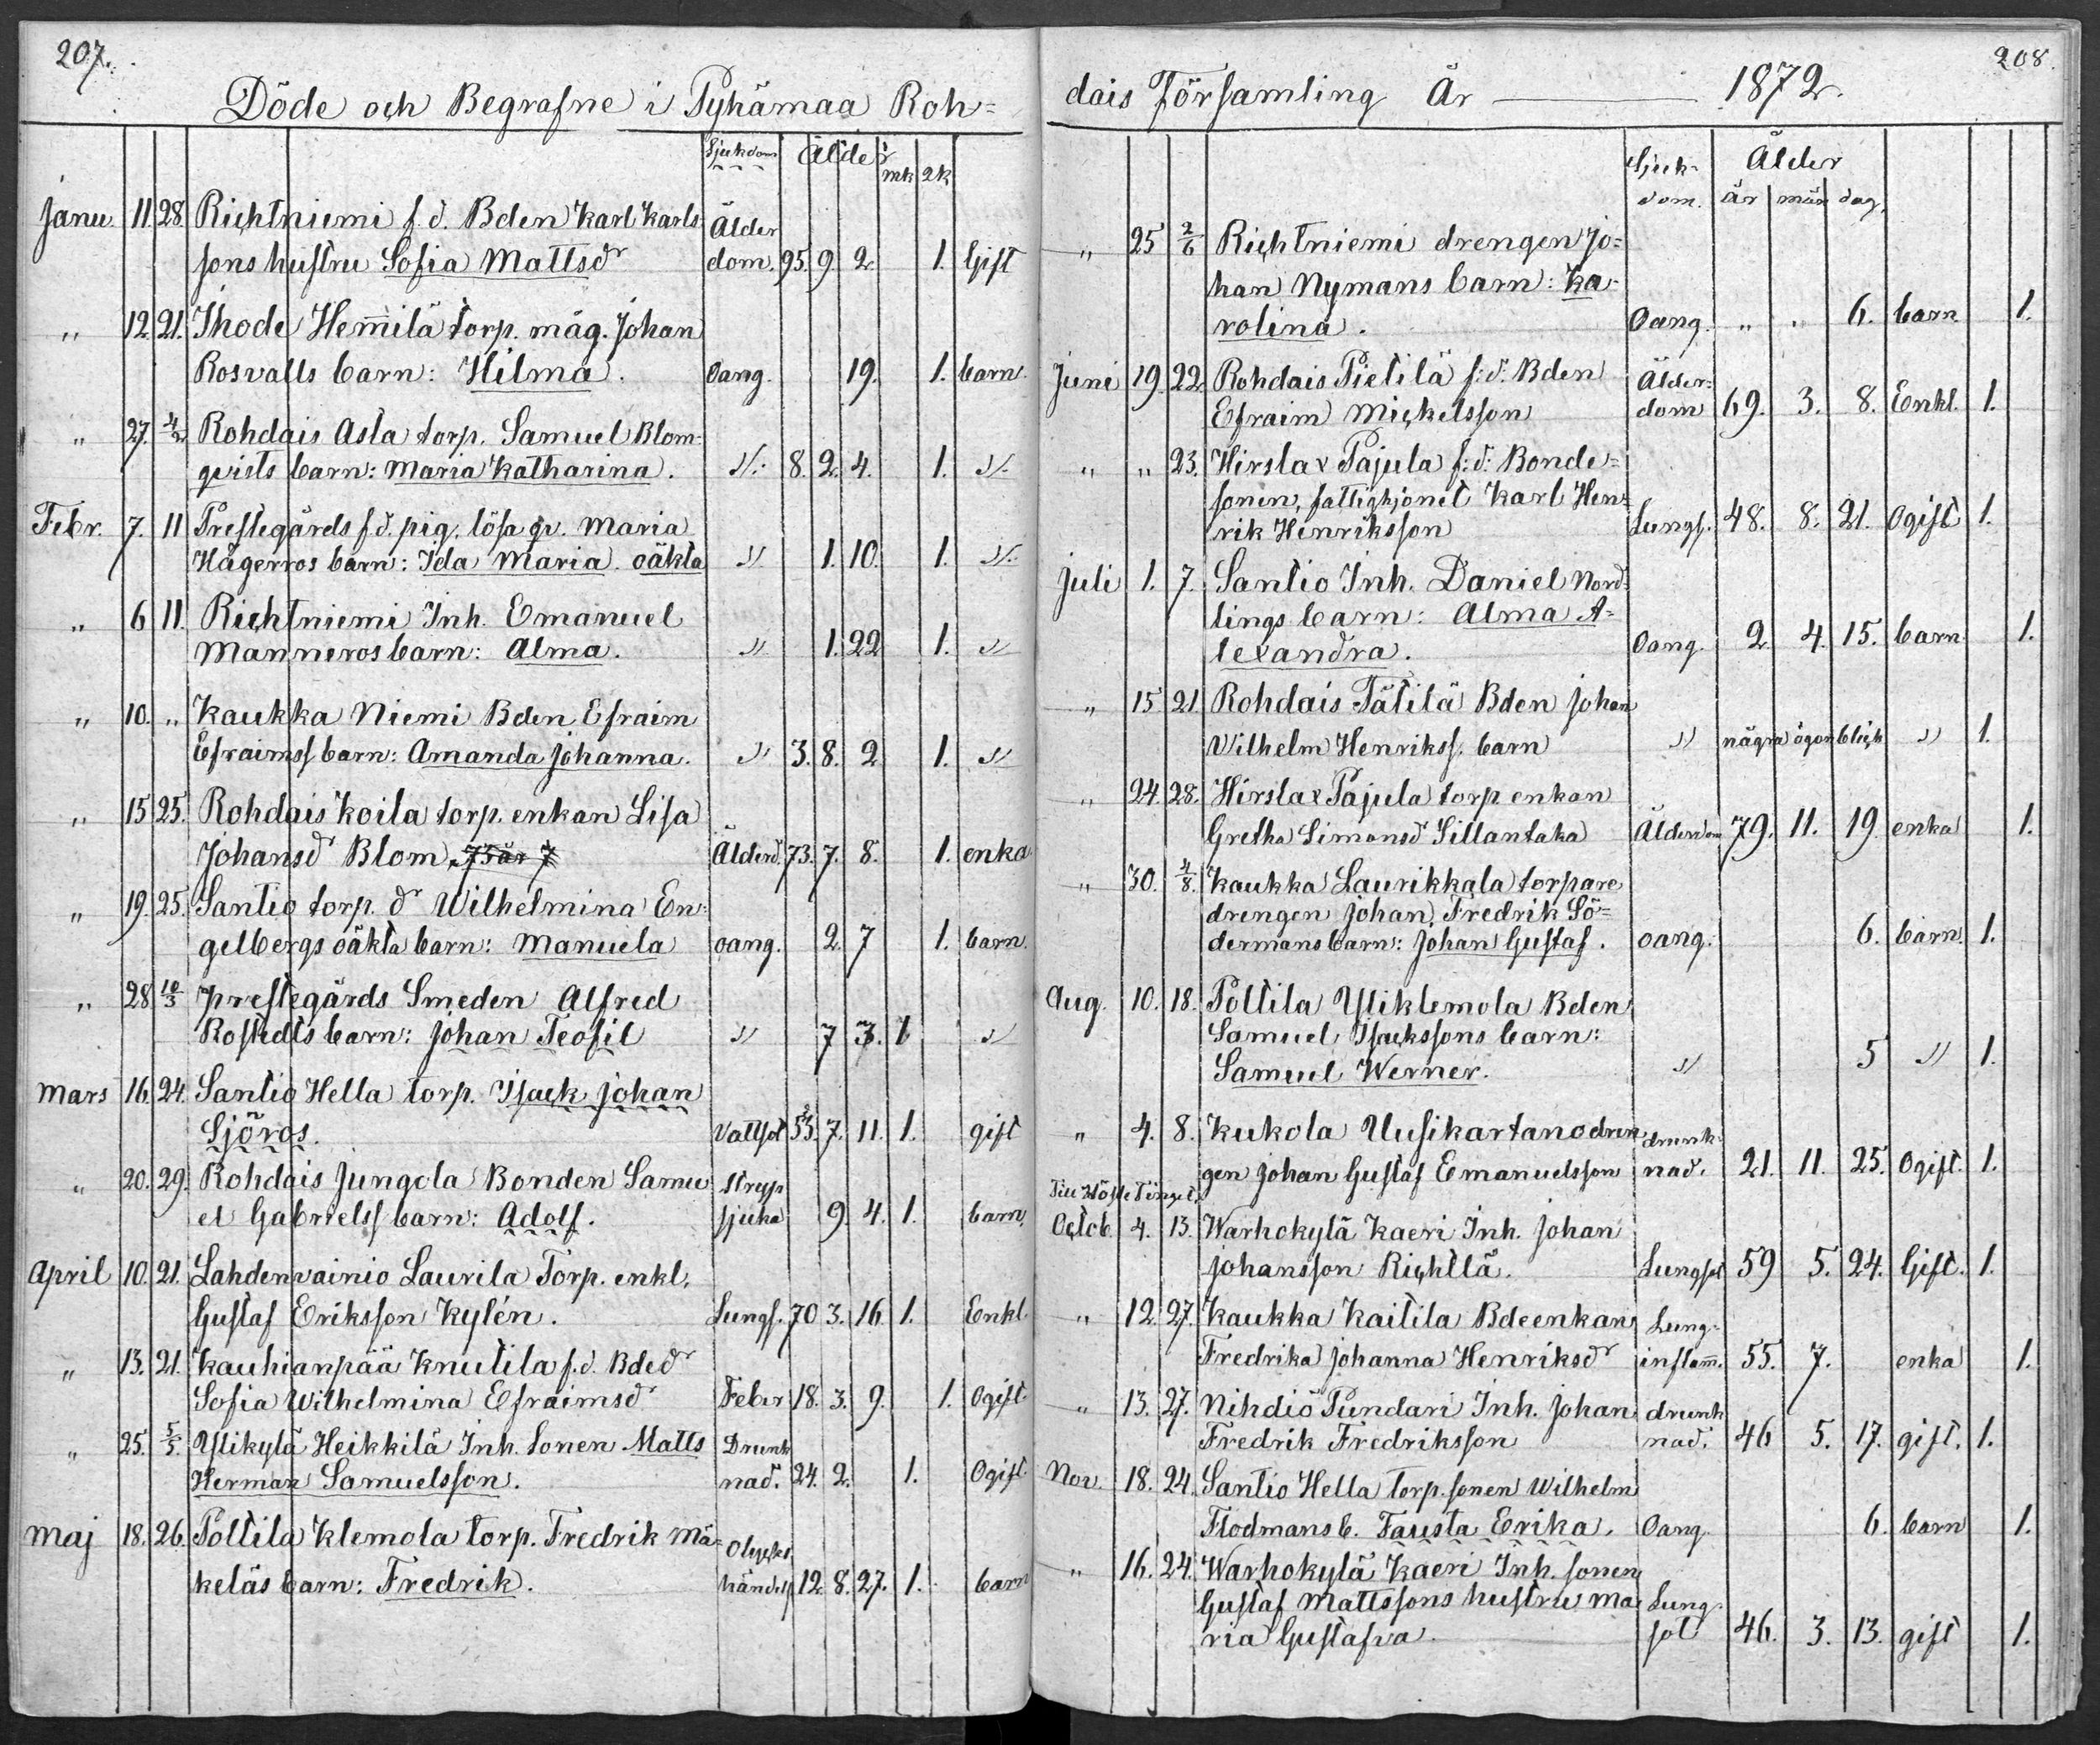 207.
Döde och Begrafne i Pyhämaa Roh=
Sjukdom Ålder
mk qk
Janu. 11. 28. Richtniemi f.d. Bden Karl Karls Ålder
sons hustru Sofia Mattsdr dom. 95. 9. 2 1. Gift
" 12. 21. Ihode Hemilä torp. måg. Johan
Rosvalls barn: Hilma. Oang. 19. 1. barn.
" 27. 4/2 Rohdais Asla torp. Samuel Blom-
qvists barn: Maria Katharina. " 8. 2. 4. 1. "
Febr. 7. 11 Prestegårds f.d. pig. lösa qv. Maria
Hägerros barn: Ida Maria. oäkta " 1. 10. 1. "
" 6 11. Richtniemi Inh. Emanuel
Manneros barn: Alma. " 1. 22 1. "
" 10. " Kaukka Niemi Bden Efraim
Efraimss barn: Amanda Johanna. " 3. 8. 2 1. "
" 15 25. Rohdais Koila torp. enkan Lisa
Johansd Blom, 73 år 7 Ålderd. 73. 7. 8. 1. enka
" 19. 25. Santio torp. dr Wilhelmina En-
gelbergs oäkta barn: Manuela oang. 2. 7 1. barn.
" 28 10/3 Prestegårds Smeden Alfred
Rostedts barn: Johan Teofil " 7 3. 1 "
Mars 16. 24. Santio Hella torp. Isack Johan
Sjöros. Vattsot 53. 7. 11. 1. gift
" 20. 29. Rohdais Jungola Bonden Samu Stryp
el Gabrielss barn: Adolf. sjuka 9. 4. 1. barn.
April 10. 21. Lahdenvainio Laurila Torp. enkl.
Gustaf Eriksson Kylén. Lungs. 70 3. 16. 1. Enkl.
" 13. 21. Kauhianpää Knutila f.d. Bdedr
Sofia Wilhelmina Efraimsd Feber 18. 3. 9. 1. Ogift.
" 25. 5/5. Ylikylä Heikkilä Inh. Sonen Matts Drunk
Herman Samuelsson. nad. 24. 2. 1. Ogift.
Maj 18. 26. Polttila Klemola torp. Fredrik Mä= Olycks
keläs barn: Fredrik. händels 12. 8. 27. 1. barn
208.
dais Församling År 1872.
Sjuk- Ålder
dom. år mån dag.
" 25 2/6 Richtniemi drengen Jo=
han Nymans barn: Ka-
rolina. Oang. " " 6. barn 1.
Juni 19. 22. Rohdais Pietilä f.d. Bden Ålder=
Efraim Mickelsson dom 69. 3. 8. Enkl. 1.
" " 23. Hirslax Pajula f:d: Bonde=
sonen, fattighjonet Karl Hen=
rik Henriksson Lungs. 48. 8. 21. Ogift 1.
Juli 1. 7. Santio Inh. Daniel Nord-
lings barn: Alma A=
lexandra. Oang. 2 4. 15. barn 1.
" 15 21. Rohdais Tätilä Bden Johan
Wilhelm Henrikss. barn " några ögonblick " 1.
" 24. 28. Hirslax Pajula torp enkan
Gretha Simonsd Sillantaka Ålderdom 79. 11. 19. enka 1.
" 30. 4/8. Kaukka Laurikkala torpare
drengen Johan Fredrik Sö=
dermans barn: Johan Gustaf. oang. 6. barn. 1.
Aug. 10. 18. Polttila Yliklemola Bden
Samuel Isackssons barn:
Samuel Werner. " 5 " 1.
" 4. 8. Kukola Uusikartano dren drunk-
gen Johan Gustaf Emanuelsson nad. 21. 11. 25. Ogift. 1.
Till Höste Tinget.
Octob. 4. 13. Warhokylä Kaeri Inh. Johan
Johansson Richtlä. Lungsot 59 5. 24. Gift. 1.
" 12. 27. Kaukka Kaitila Bdeenkan Lung-
Fredrika Johanna Henriksdr inflam. 55. 7. enka 1.
" 13. 27. Nihdiö Pundari Inh. Johan drunk
Fredrik Fredriksson nad. 46 5. 17. gift. 1.
Nov. 18. 24. Santio Hella torp. sonen Wilhelm
Flodmans b. Fausta Erika. Oang. 6. barn 1.
" 16. 24. Warhokylä Kaeri Inh. sonen
Gustaf Mattssons hustru Ma Lung
ria Gustafva. sot 46. 3. 13. gift 1.